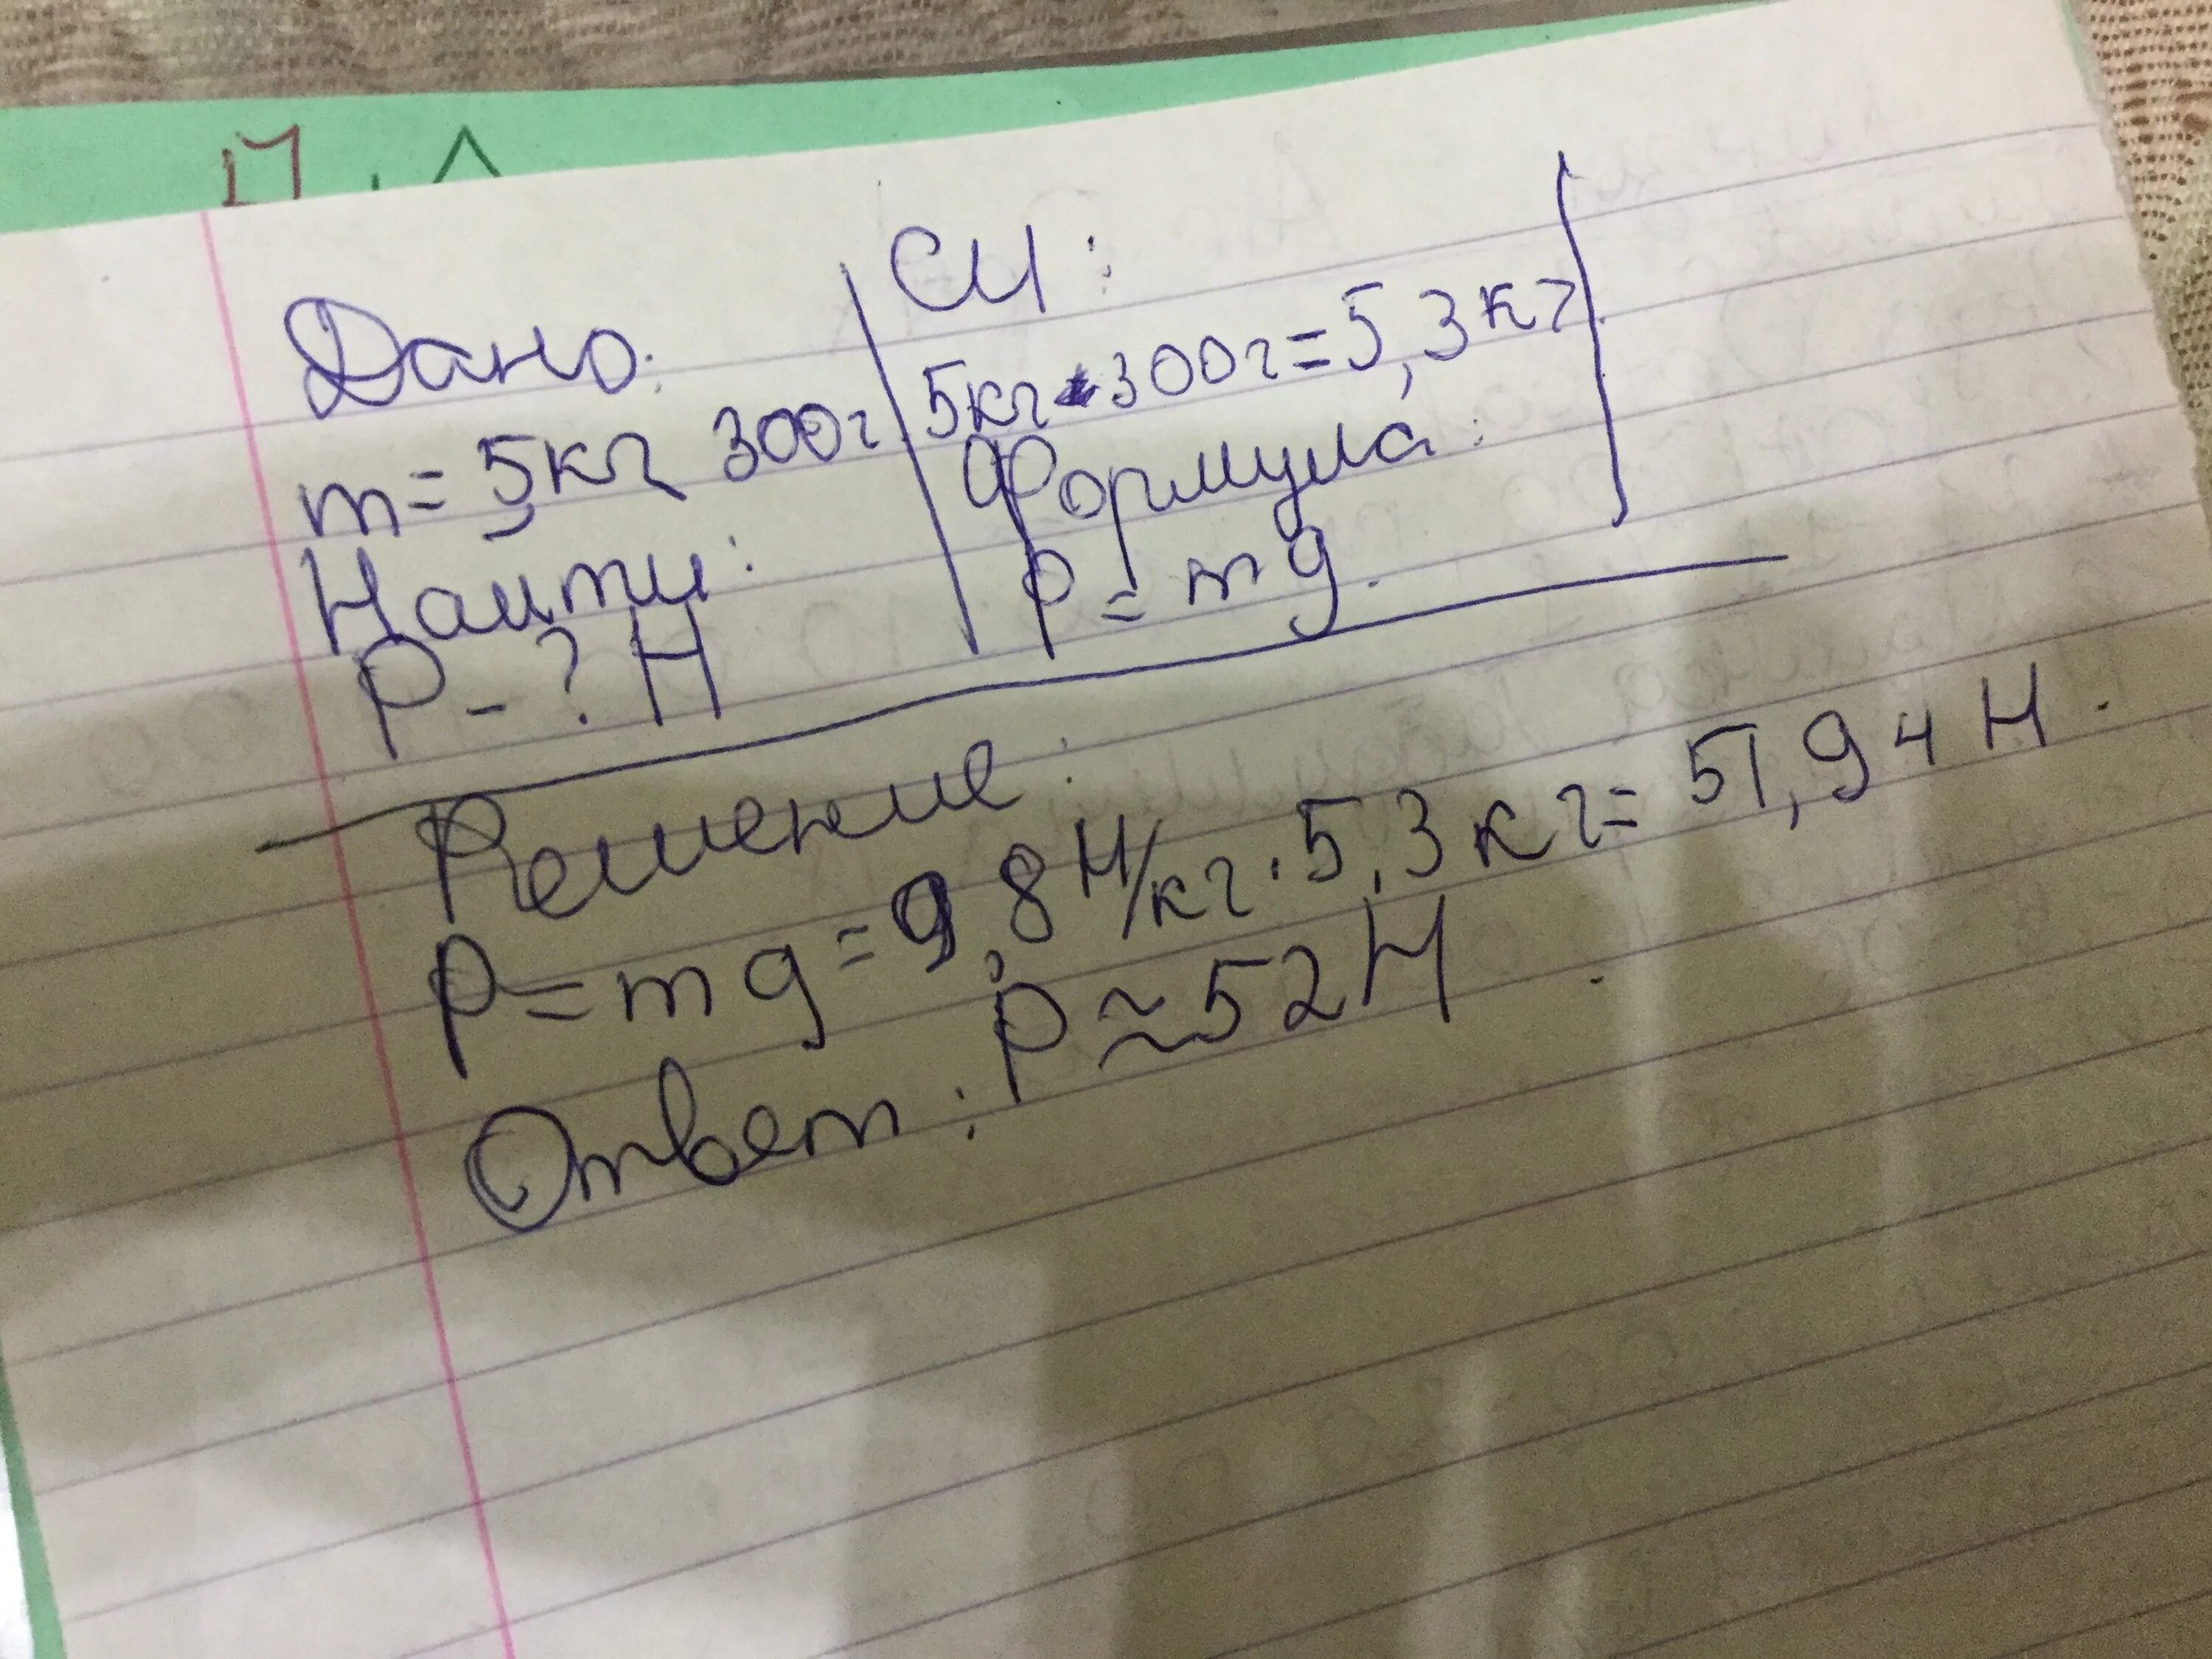 Дано:
m = 5кг 300г
Найти:
P - ? Н
СИ:
5кг 300г = 5,3 кг
Формула:
P = mg.
Решение:
P = mg = 9,8 Н/кг · 5,3 кг = 51,94 Н.
Ответ: P ≈ 52 Н